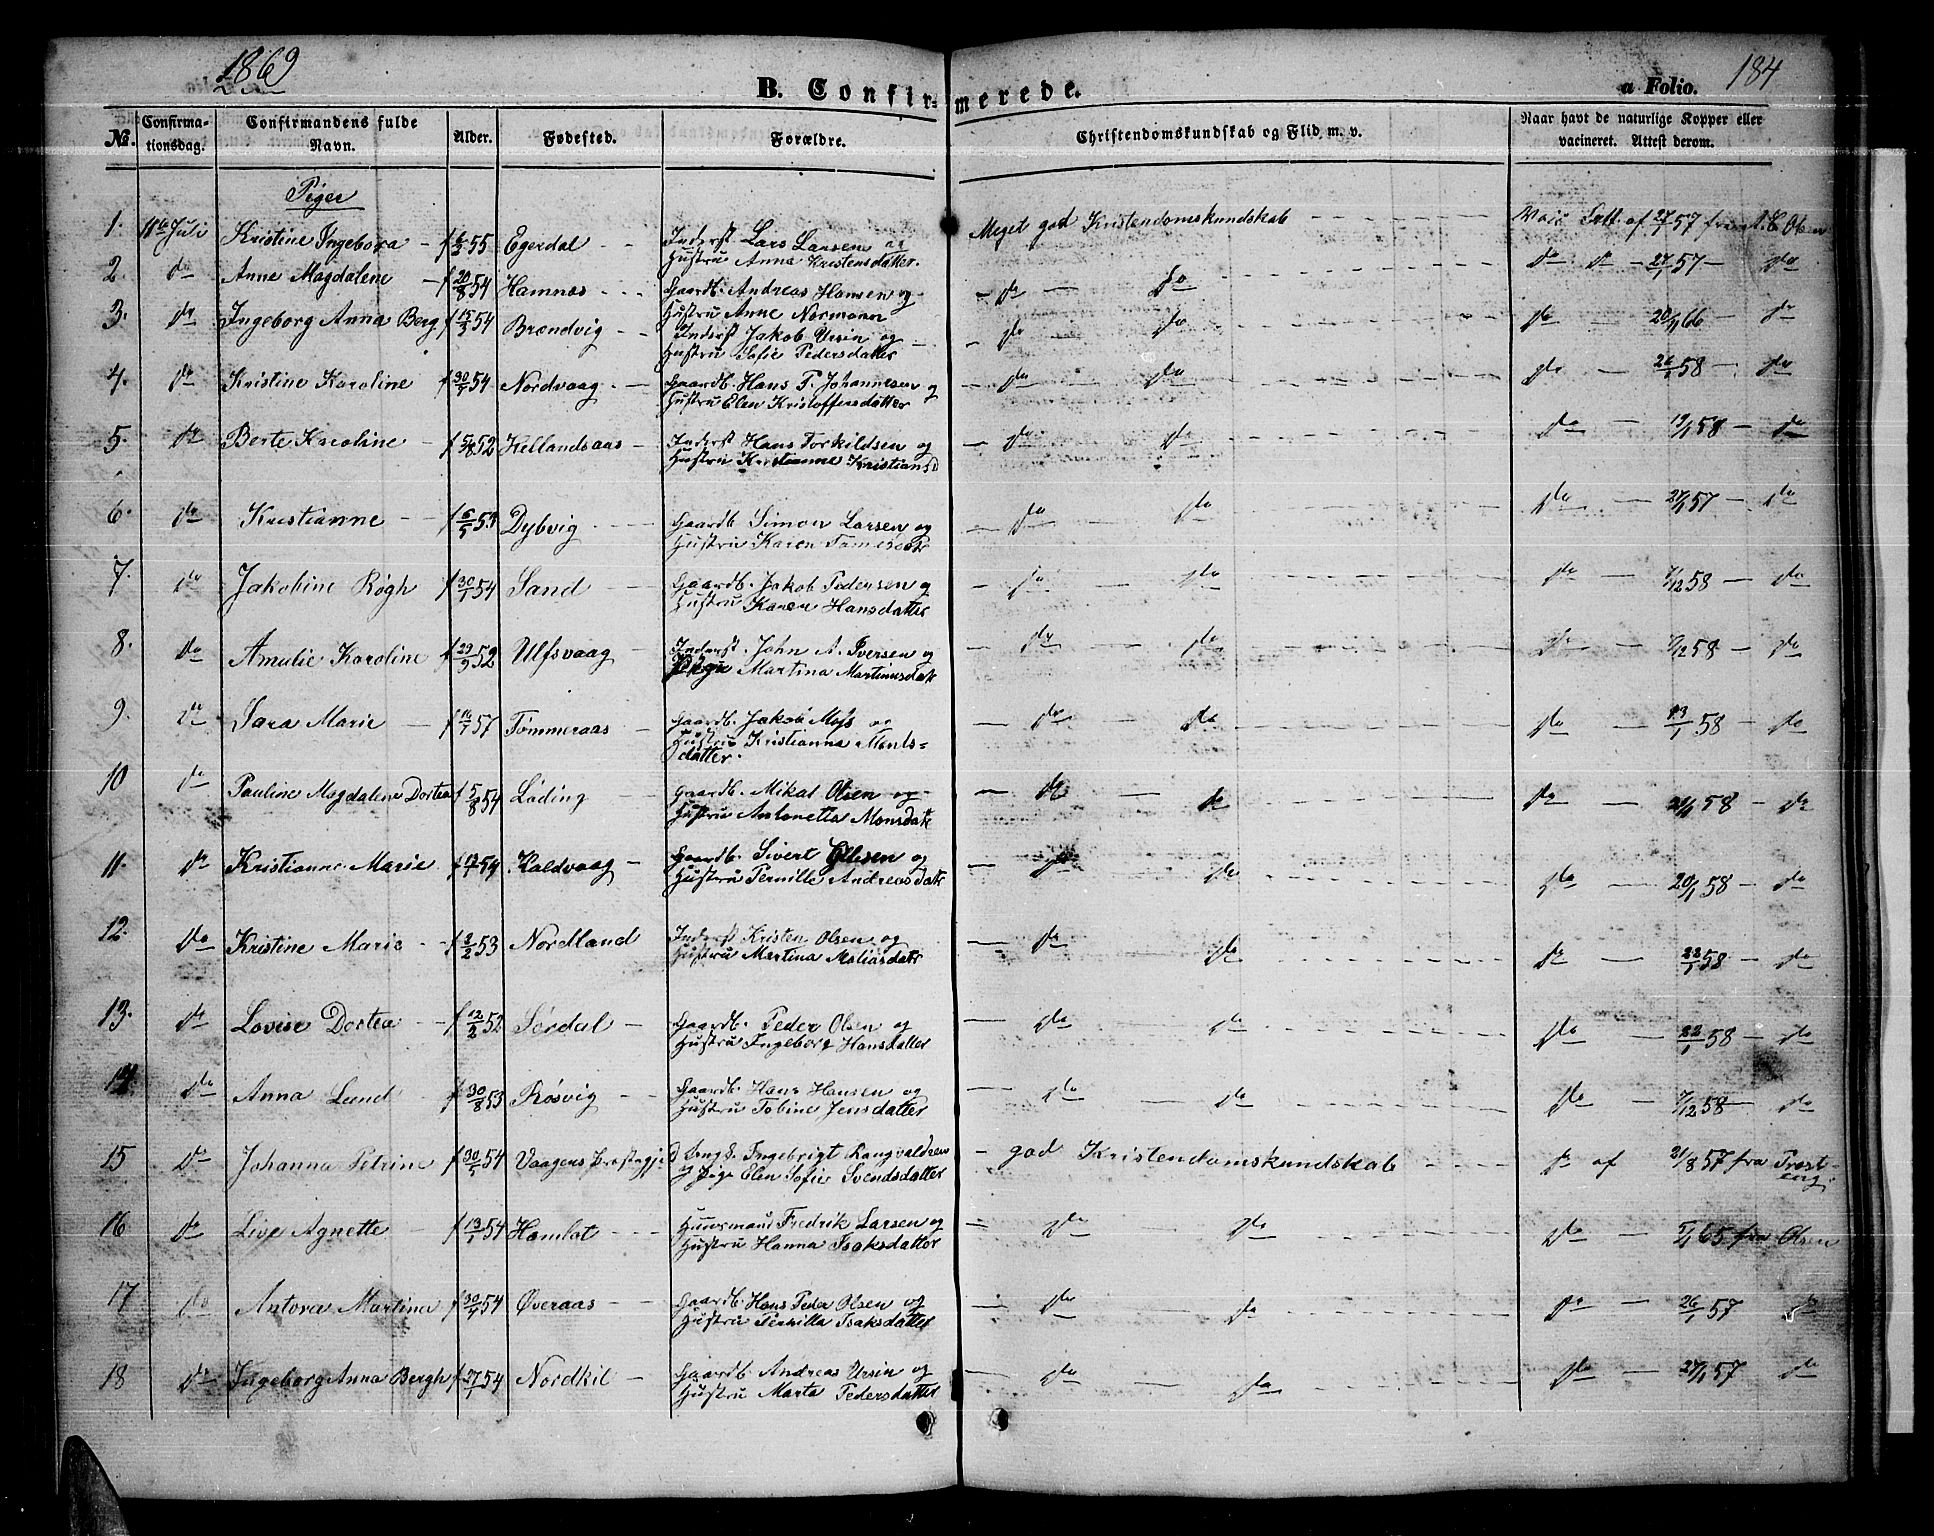 1869
184
B. Confirmerede.
a Folio.
No.
Confirmationsdag.
Confirmandens fulde Navn.
Alder.
Fødested.
Forældre.
Christendomskundskab og Flid m. v.
Naar havt de naturlige Kopper eller vacineret. Attest derom.
Piger
1. 11te Juli Kristine Ingebora f 6/2 55 Egerdal Inderst Lars Larsen og Meget god Kristendomskundskab Vaic Att. af 27/7 57 fra A. E Olsen
Hustru Anna Kristensdatter.
2. do Anne Magdalene f 20/8 54 Hamnes Gaardb. Andreas Hansen og do do do do 27/1 57 do
Hustru Anne Normann
3. do Ingeborg Anna Berg f 15/3 54 Brendvig Inderst Jakob Ursin og do do do 20/1 66 do
Hustru Sofie Pedersdatter
4. do Kristine Karoline f 30/7 54 Nordvaag Gaardb. Hans P. Johannesen og do do do 26/1 58 do
Hustru Elen Kristoffersdatter
5. do Berte Karoline f 5/8 52 Hellandsaas Inderst Hans Torkildsen og do do do 19/1 58 do
Hustru Kristianne Kristiansd
6. do Kristianne f 6/5 53 Dybvig Gaardb Simon Larsen og do do do 27/1 57 do
Hustru Karen
7. do Jakobine Røgh f 30/1 54 Sand Gaardb. Jakob Pedersen og do do do 7/12 58 do
Hustru Karen Hansdatter
8. do Amalie Karoline f 29/9 52 Ulfsvaag Inderst. John A. Iversen og do do do 7/12 58 do
Pige Martina Martinusdatr
9. do Sara Marie f 16/7 57 Tømmeraas Gaardb. Jakob Mos og do do do 13/1 58 do
Hustru Kristianna Monts-
datter.
10 do Pauline Magdalene Dortea f 5/8 54 Løding Gaardb. Mikal Olsen og do do do 20/1 58 do
Hustru Antonetta Monsdatr
11. do Kristianne Marie f 17/7 54 Kaldvaag Gaardb. Sivert Ellisen og do do do 20/1 58 do
Hustru Pernille Andreasdatr
12. do Kristine Marie f 3/2 53 Nordland Inderst Kristen Olsen og do do do 22/1 58 do
Hustru Martina Matiasdatr
13. do Lovise Dortea f 12/2 52 Sørdal Gaardb. Peder Olsen og do do do 22/1 58 do
Hustru Ingeborg Hansdatter
14 do Anna Lund f 30/8 53 Røsvig Gaardb. Hans Hansen og do do do 7/12 58 do
Hustru Tobine Jensdatter
15 do Johanna Petrine f 30/5 54 Vaagens Præstegjæld Ung. Ingebrigt Rangvaldsen god Kristendomskundskab do af 21/8 57 fra Prest
og Pige Elen Sofie Svendsdatter eng.
16 do Live Agnette f 13/1 54 Hamlot Huusmand Fredrik Larsen og do do do 5/1 65 fra Olsen
Hustru Hanna Isaksdatter
17 do Antora Martina f 30/4 54 Øveraas Gaardb. Hans Peder Olsen og do do do 26/1 57 do
Hustru Pernilla Isaksdatter
18 do Ingeborg Anna Bergh f 27/1 54 Nordkil Gaardb Andreas Ursin og do do do 27/1 57 do
Hustru Marta Pedersdatter